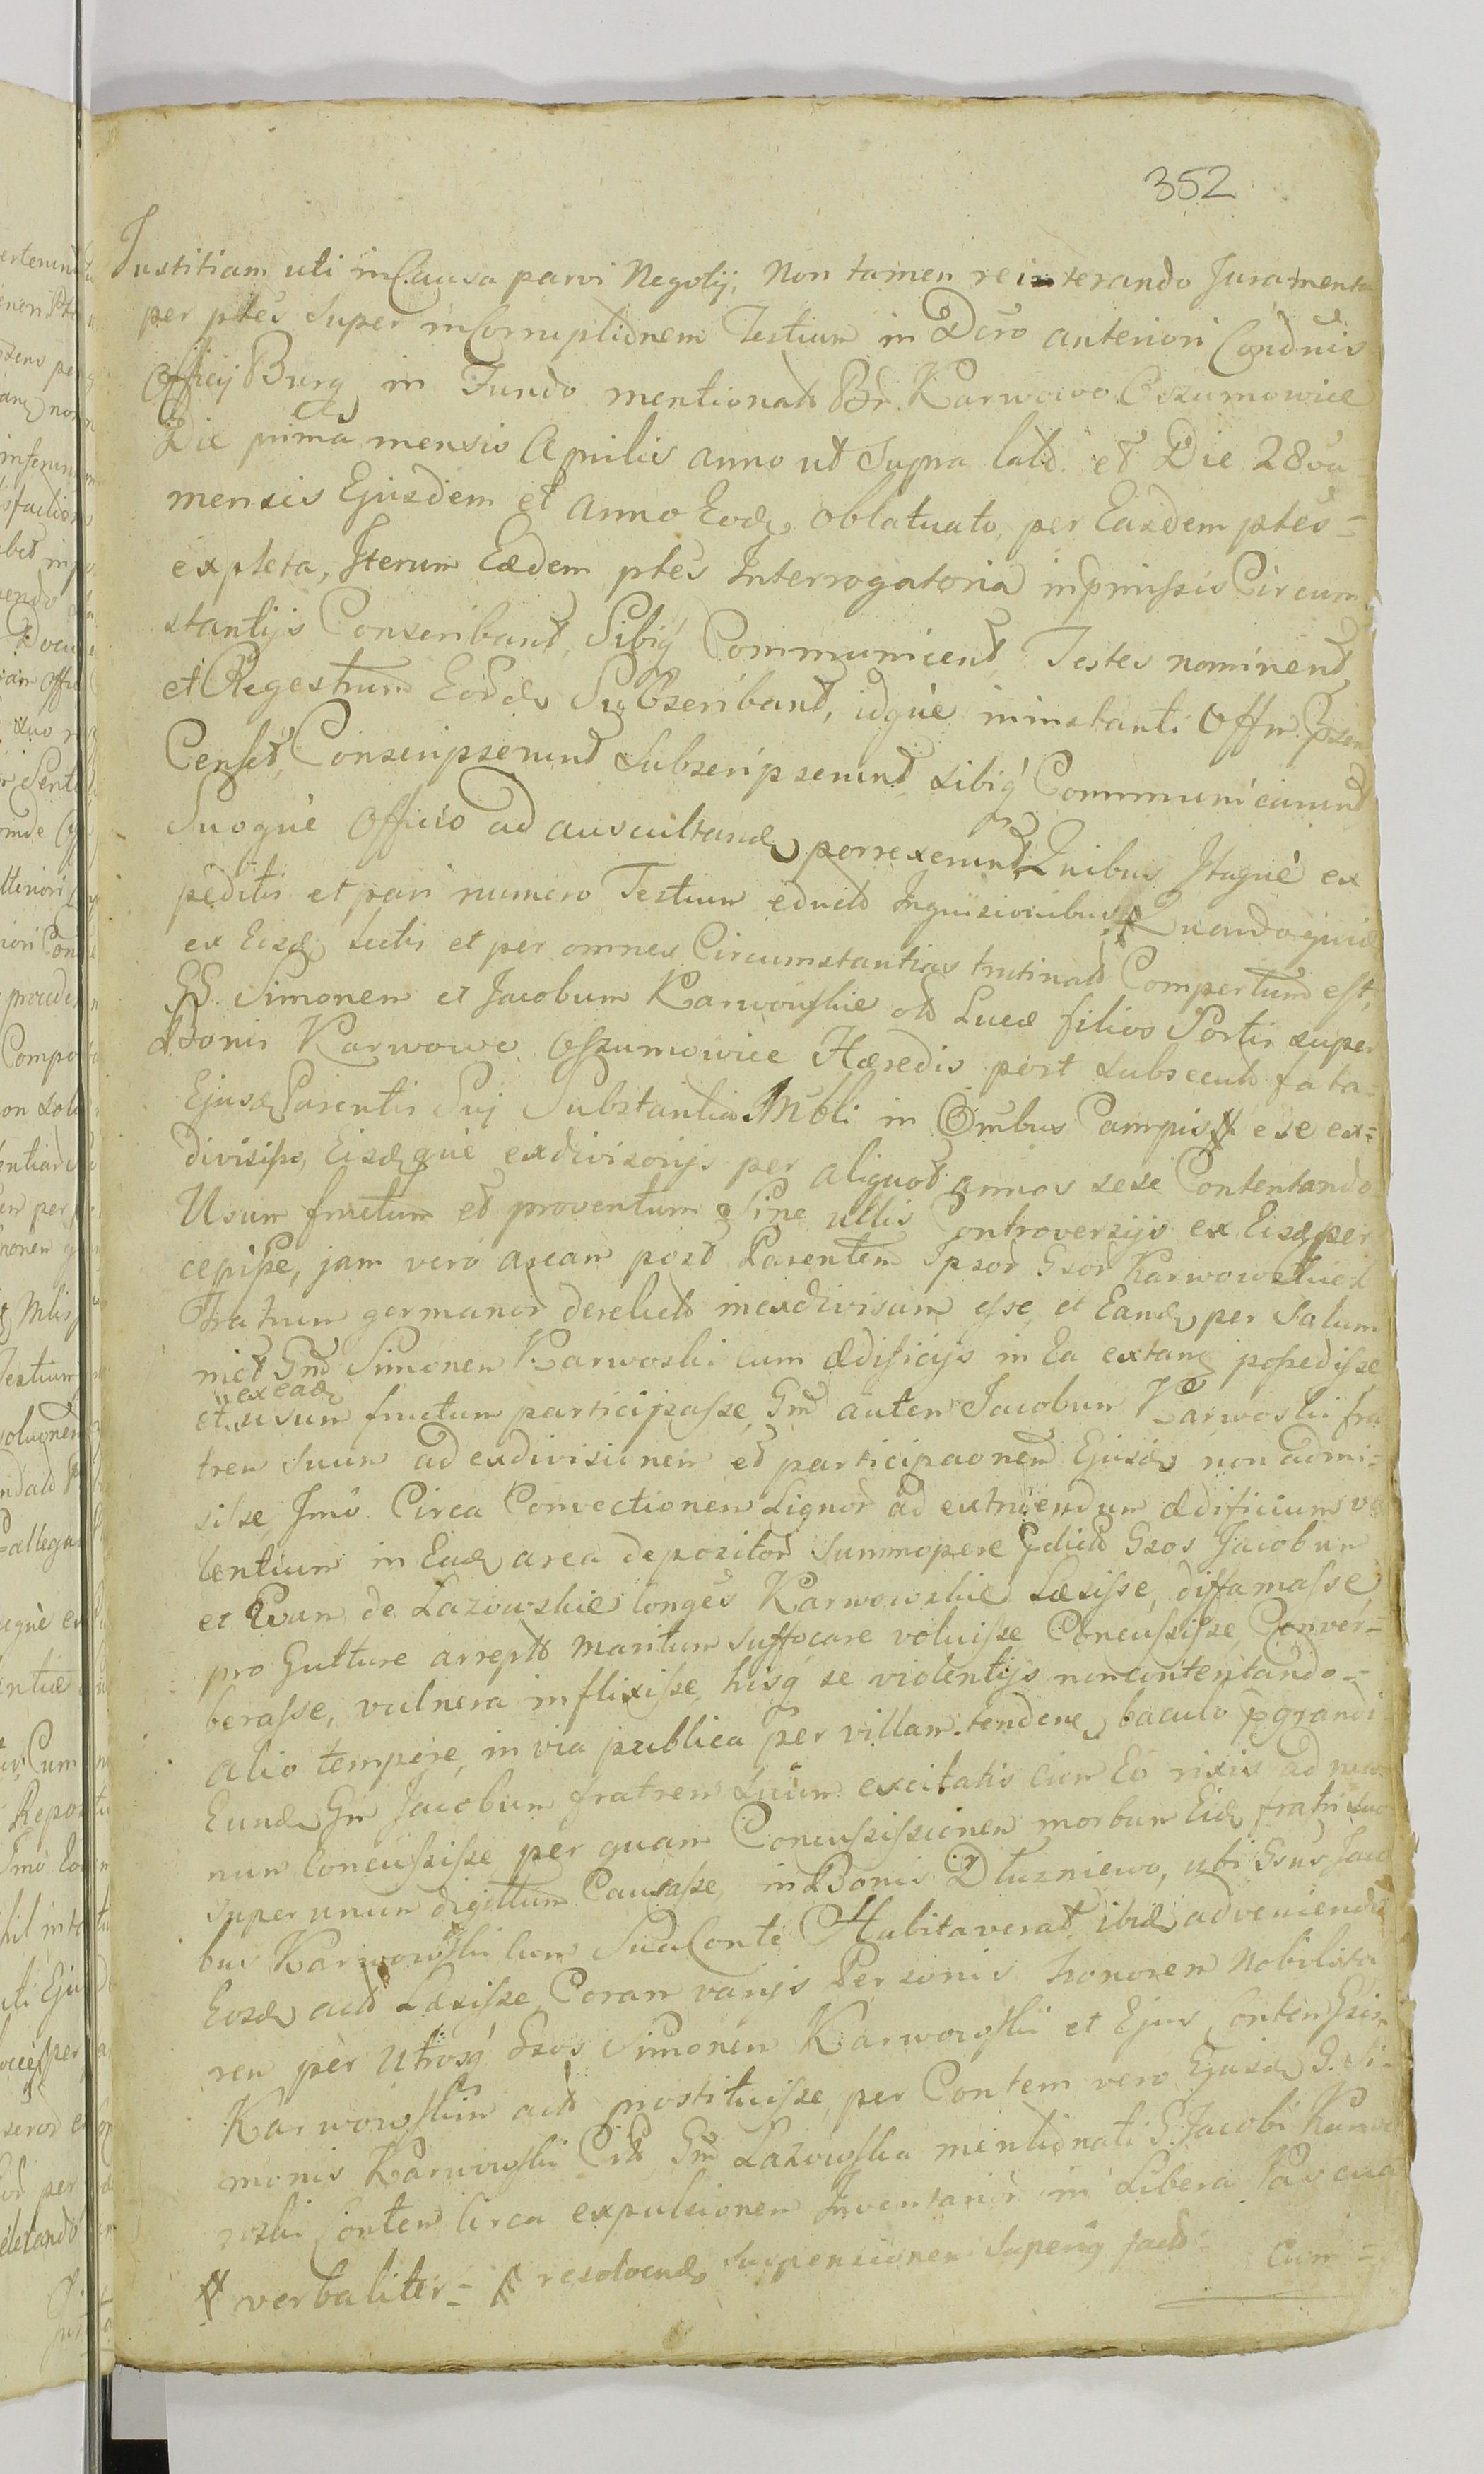 352
Justitiam uti in Causa parvi Negotij, Non tamen reinterando Juramenta
per ptes super in Corruptionem Testium in Dcro anteriori Condnis
Officij Burg in Fundo mentionat Br. Karwowo Oszumowice
Die prima mensis Aprilis anno ut supra lat. et Die 28va
mensis Ejusdem et anno Eod, oblatuato, per Easdem ptes=
expleta, Iterum Eædem ptes Interrogatoria in pmissis Circum
stantijs Conscribant, Sibiq Communicent, Testes nominent,
et Regestrum Eord Subscribant, idque in instanti Offm
Censet, Conscripserunt subscripserunt sibiq Communicarunt
Suoque Officio ad auscultand porrexerunt, Quibus Itaque ex
peditis et pari numero Testium educto Inquisicionibus Quandoquid
ex Eisd lectis et per omnes Circumstantias trutinat Compertum est,
GG. Simonem et Jacobum Karwowskie ol Lucæ filios Sortis super
Bonis Karwowo Oszumowice Hæredis post subsecut fata=
Ejusd Parentis Suj Substantia Mbli in Ombus Campis ese ex=
divisiss, Eisdque exdivisorijs per aliquot annos sese Contentando
Usum fructum et proventum Sine ullis Controversijs ex Eisd per
cepisse, jam vero aream post Parentem Ipsor Gsor Karwowskich
Fratrum germanor derelict inexdivisam esse, et Eand per Salum
mct Gnd Simonem Karwoski cum ædificijs in Ea extang possedisse
ex ead
et usum fructum participasse, Gm autem Jacobum Karwoski fra
trem suum ad exdivisionem et participaonem Ejusd non admi=
sisse, Imo Circa Convectionem Lignor ad extruendum ædificium va
lentium in Ead area depozitor summopere Gsos Jacobum
et Evam de Lazowskie Conges Karwowskie Læsisse, diffamasse
pro Gutture arrept maritum suffocare voluisse Concussisse, Conver=
berasse, vulnera inflixisse hisq se violentijs non contentando=
alio tempore, in via publica per villam tendene, baculo pgrandi
Eund Gm Jacobum fratrem suum excitatis cum Eo rixis ad
num Concussisse per quam Concussissionem morbum Eid fratri suo
super unum digittum Causasse, in Bonis Dluzniewo, ubi Gsus Jaco
bus Karwowski cum Sua Conte Habitaverat, ibid adveniendo
Eosd act Læsisse, Coram varijs Personis honorem Nobilita
rem per Utrosq Gsos Simonem Karwowski et Ejus Contem Gsin
Karwowskim act prostituisse, per Contem vero Ejusd G. Si=
monis Karwowski Gm Lazowska mentionati G. Jacobi Karwo
wski Contem Circa expulsionem Inventarior in Libera Pascua
verbaliter= resolvend suspensionem superiq fact Cum=